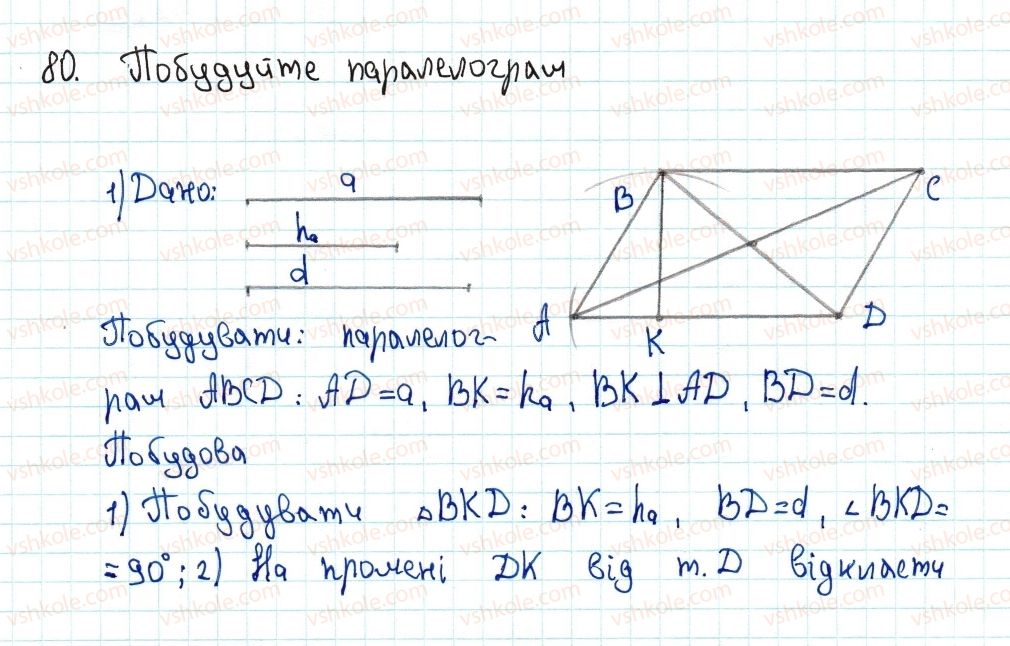 80. Побудуйте паралелограм
1) Дано:
a
hₐ
d
B
C
A
K
D
Побудувати: паралелог-
рам ABCD: AD=a, BK=hₐ, BK⊥AD, BD=d.
Побудова
1) Побудувати △BKD: BK=hₐ, BD=d, ∠BKD=
=90°; 2) На промені DK від т. D відкласти
vshkole.com